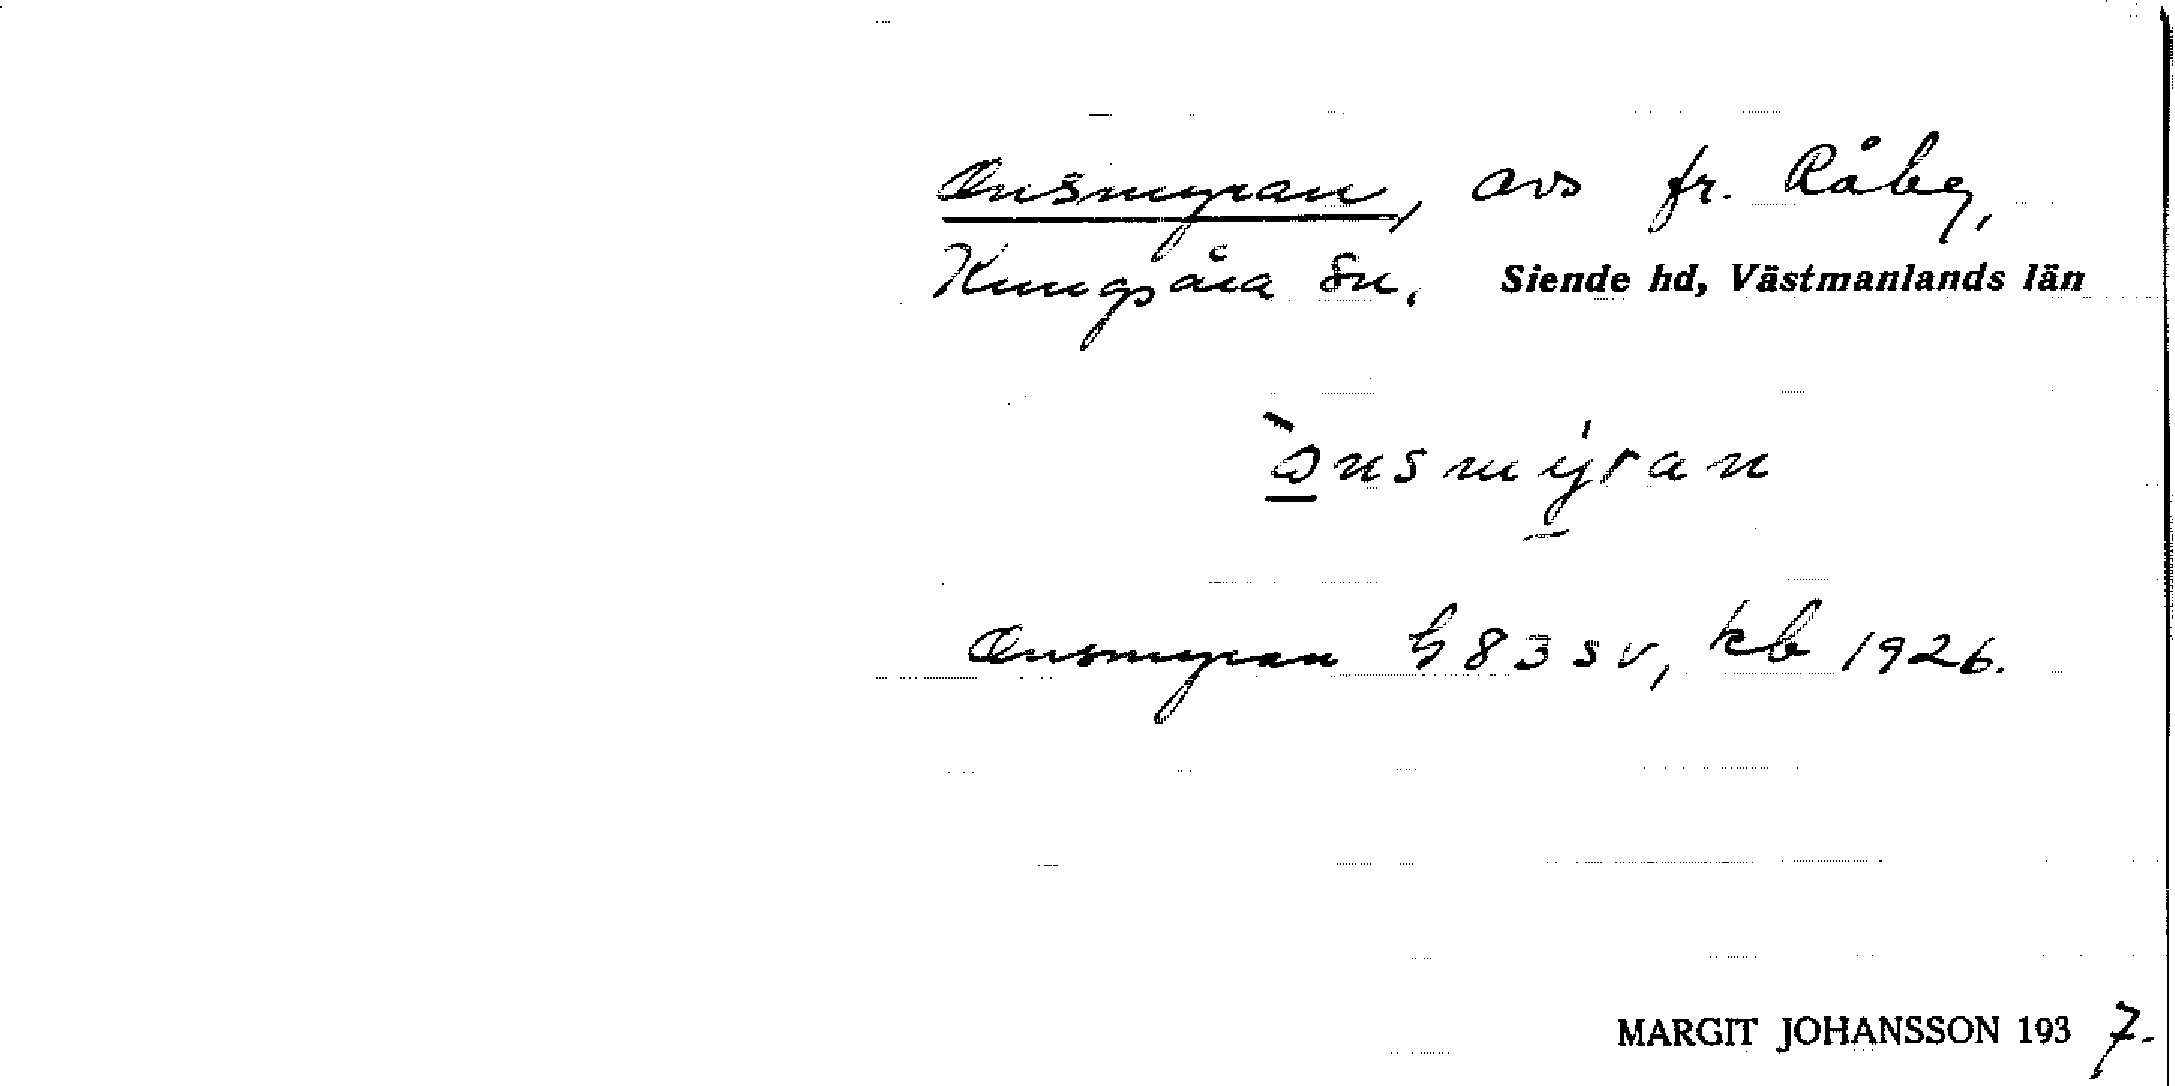 Onsmyran, avs fr. Råby,
Kungsåra sn, Siende hd, Västmanlands län
ònsmýran
Onsmyran h 83 sv, kb 1926.
MARGIT JOHANSSON 1937.